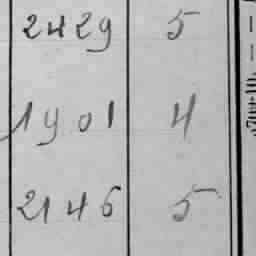 2429 5
1901 4
2146 5